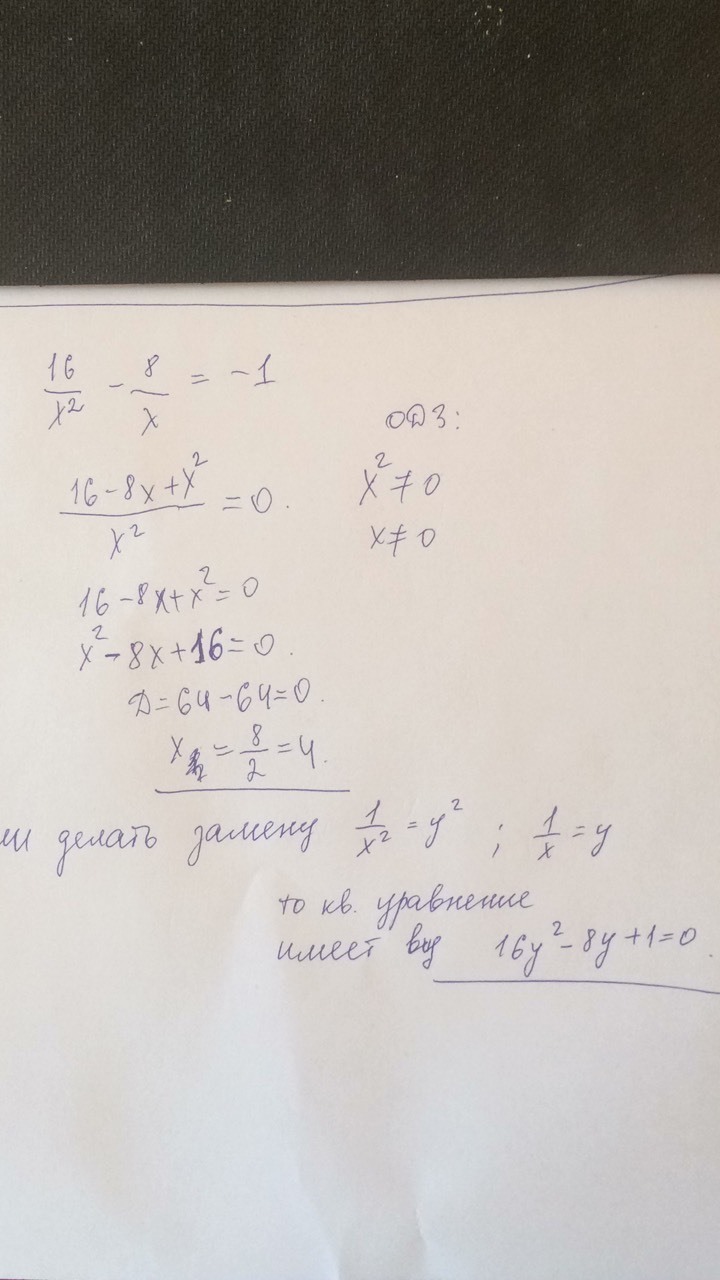 16/x² - 8/x = -1
ОДЗ:
(16-8x+x²)/x² = 0.
x² ≠ 0
x ≠ 0
16-8x+x²=0
x²-8x+16=0.
D=64-64=0.
x = 8/2 = 4.
делать замену 1/x² = y² ; 1/x = y
то кв. уравнение
имеет вид 16y²-8y+1=0.